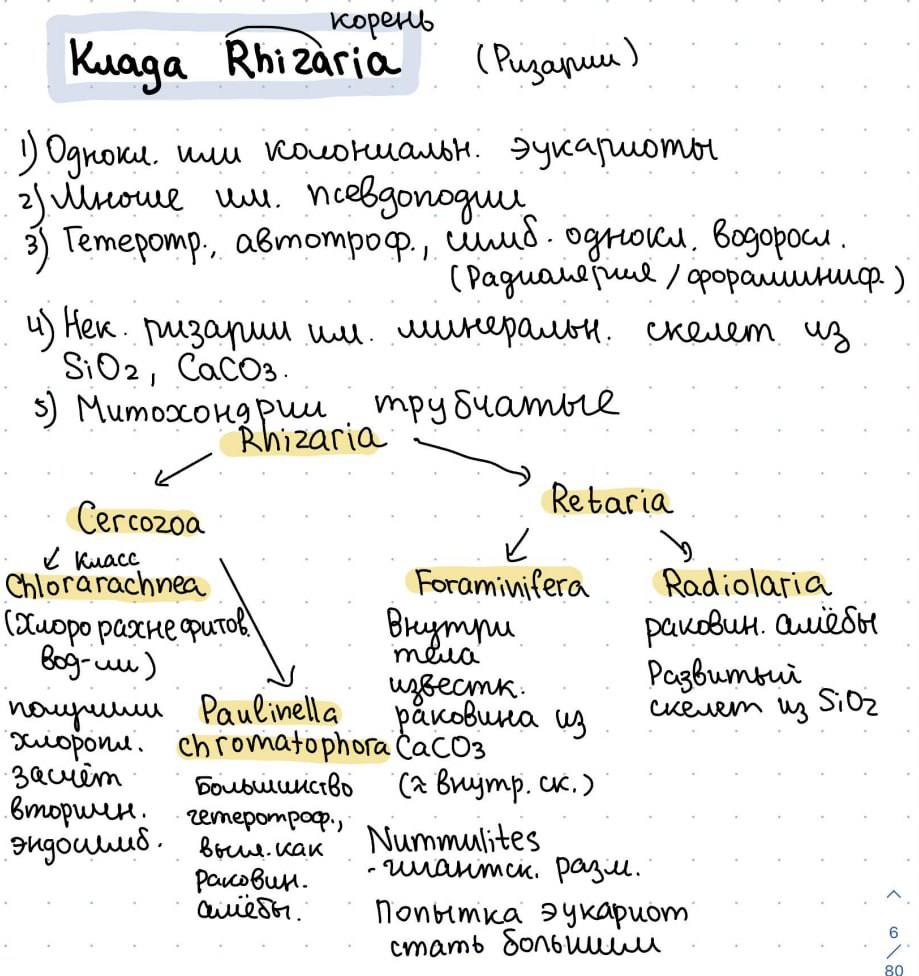 корень
Клада Rhizaria (Ризарии)
1) Однокл. или колониальн. эукариоты
2) Многие им. псевдоподии
3) Гетеротр., автотроф., симб. однокл. водоросл.
(Радиолярие / фораминиф.)
4) Нек. ризарии им. минеральн. скелет из
SiO2, CaCO3.
5) Митохондрии трубчатые
Rhizaria
Cercozoa
Retaria
↙ Класс
Chlorarachnea
(Хлоро рахнефитов.
вод-ли)
получили
хлоропл.
засчёт
вторичн.
эндосимб.
Paulinella
chromatophora
Большинство
гетеротроф.,
выгл. как
раковин.
амёбы.
Foraminifera
Внутри
тела
известк.
раковина из
CaCO3
(≈ внутр. ск.)
Nummulites
- гигантск. разм.
Попытка эукариот
стать большими
Radiolaria
раковин. амёбы
Развитый
скелет из SiO2
6
/
80